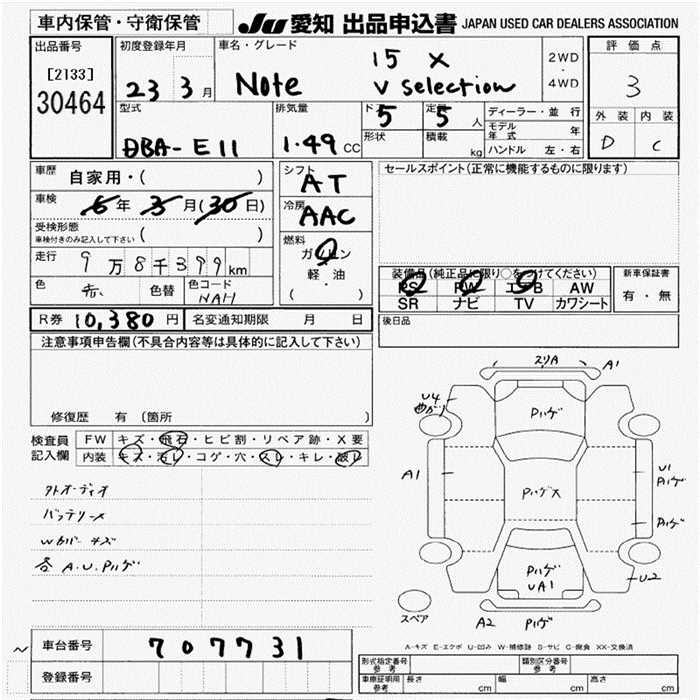 車内保管・守衛保管 JU 愛知 出品申込書 JAPAN USED CAR DEALERS ASSOCIATION
出品番号
[2133]
30464
初度登録年月
23 3月
車名・グレード
Note
15 X
V Selection
2WD
・
4WD
評価点
3
外装 内装
D C
型式
DBA-E11
排気量
1.49 CC
ド
5
定員
5 人
形状
積載
kg
ディーラー・並行
モデル年式 年
ハンドル 左・右
車歴 自家用・( )
車検 6年 3月(30日)
受検形態
車検付きのみ記入して下さい ( )
走行 9万8千399km
色 赤 色替 色コード NAH
シフト
AT
冷房
AAC
燃料
ガソリン
軽・油
( )
セールスポイント(正常に機能するものに限ります)
装備品(純正品に限り○をつけてください)
PS PW エアB AW
SR ナビ TV カワシート
新車保証書
有・無
R券 10,380円 名変通知期限 月 日
後日品
注意事項申告欄(不具合内容等は具体的に記入して下さい)
修復歴 有(箇所
検査員
記入欄
FW キズ・飛石・ヒビ割・リペア跡・X要
内装 キズ・汚レ・コゲ・穴・スレ・キレ・破レ
外オーディオ
バッテリーメ
Wカバーキズ
各A.U.Pハゲ
スリA A1
U4
曲がり
Pハゲ
A1
PハゲX
U1
Pハゲ
Pハゲ
Pハゲ
UA1
U2
スペア
A2 Pハゲ
A-キズ E-エクボ U-凹み W-補修跡 S-サビ C-腐食 XX-交換済
車台番号 707731
登録番号
型式指定番号
参考
類別区分番号
参考
車庫証明用
参考
長さ cm 幅 cm 高さ cm